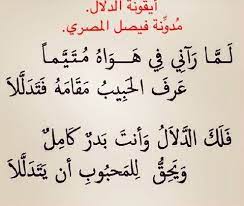 أيقونة الدلال.
مُدوِّنة فيصل المصري.
لَمَّا رَآنِي فِي هَوَاهُ مُتَيَّماً
عَرَفَ الحَبِيبُ مَقَامَهُ فَتَدَلَّلاَ
فَلَكَ الدَّلاَلُ وَأنتَ بَدرٌ كَامِلٌ
وَيَحِقُّ لِلمَحبُوبِ أن يَتَدَلَّلاَ